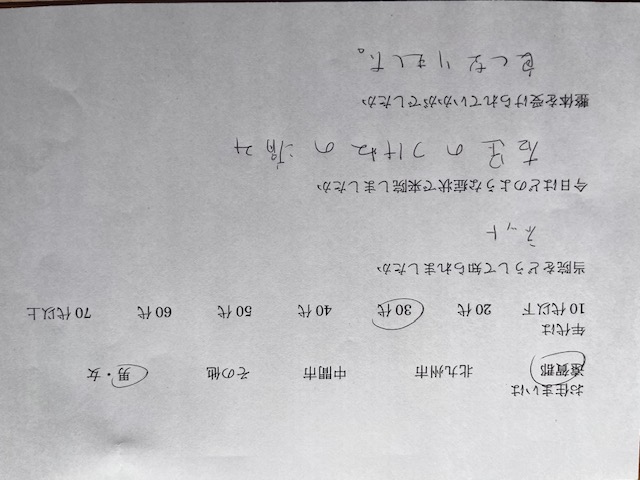 お住まいは
遠賀郡 北九州市 中間市 その他 男・女
年代は
10代以下 20代 30代 40代 50代 60代 70代以上
当院をどうして知られましたか
ネット
今日はどのような症状で来院しましたか
左足のつけねの痛み
整体を受けられていかがでしたか
良くなりました。